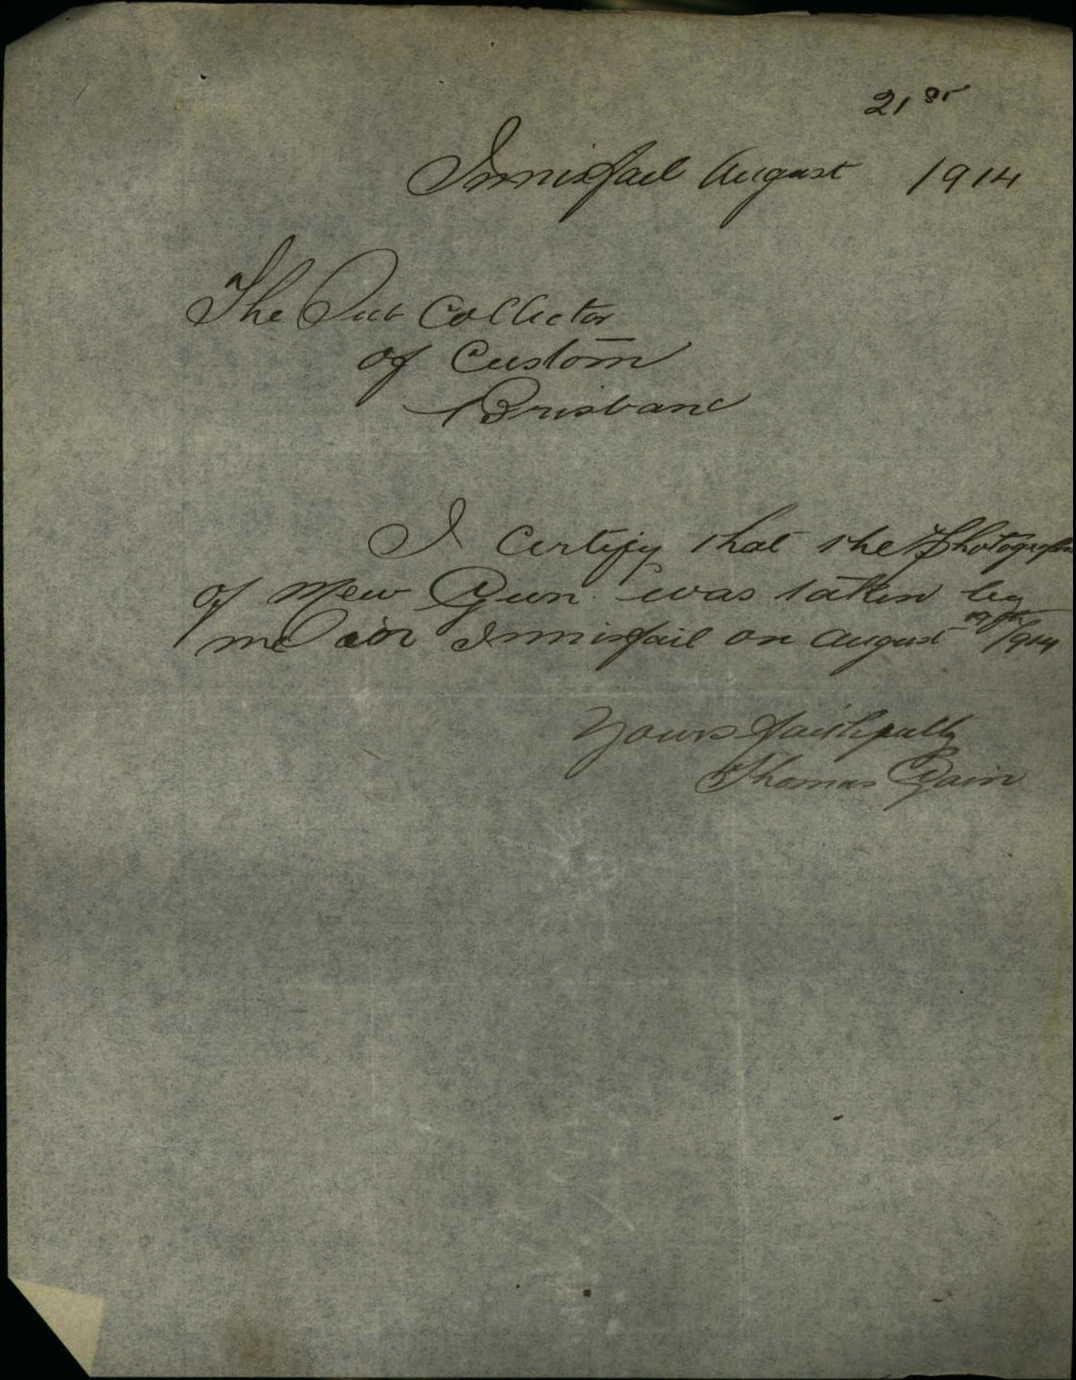 21st
Innisfail August 1914
The Sub Collector
of Custom
Brisbane
I Certify that the Photograph
of Mew Gun was taken by
me in Innisfail on August 1914
Yours faithfully
Thomas